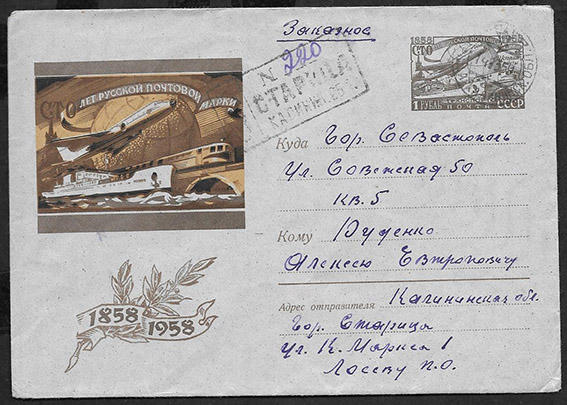 Заказное
1858 1958
СТО ЛЕТ РУССКОЙ ПОЧТОВОЙ МАРКИ
1 РУБЛЬ ПОЧТА СССР
N 220
СТАРИЦА
СТО ЛЕТ РУССКОЙ ПОЧТОВОЙ МАРКИ
Куда Гор. Севастополь
ул. Советская 50
кв. 5
Кому Руденко
Алексею Евтроповичу
Адрес отправителя Калининская обл.
Гор. Старица
ул. К. Маркса 1
Лосеву П.О.
1858 1958